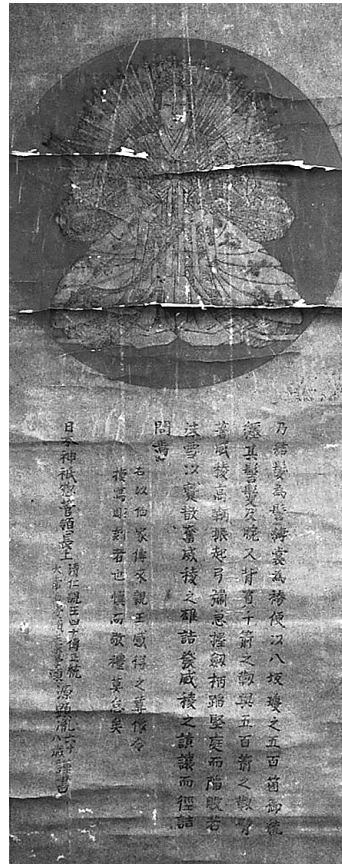 乃結髮為髻縛裳為袴便以八坂瓊之五百箇御統
纏其髻鬘及腕又背負千箭之靫與五百箭之靫臂
著威稜高鞆振起弓彇急握劔柄蹈堅庭而陷股若
沫雪以蹴散奮威稜之雄誥發威稜之嘖讓而徑詰
問焉
右以伯家傳來親王感得之尊像令
模寫彫刻者也慎而敬禮莫怠矣
日本神祇惣菅領長上 清仁親王四十傳正統 源顯胤